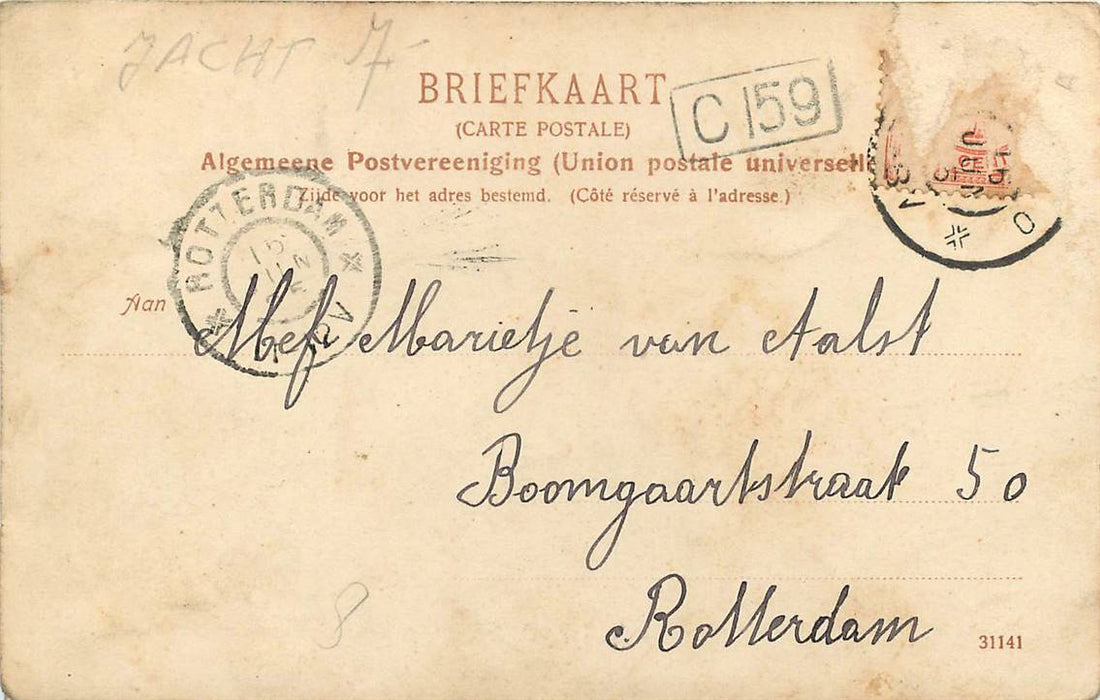 JACHT 7-
BRIEFKAART
(CARTE POSTALE)
C 159
Algemeene Postvereeniging (Union postale universell
Zijde voor het adres bestemd. (Côté réservé à l'adresse.)
ROTTERDAM
15 JUN
Aan Mej Marietje van Aalst
Boomgaartstraat 50
Rotterdam
8
31141